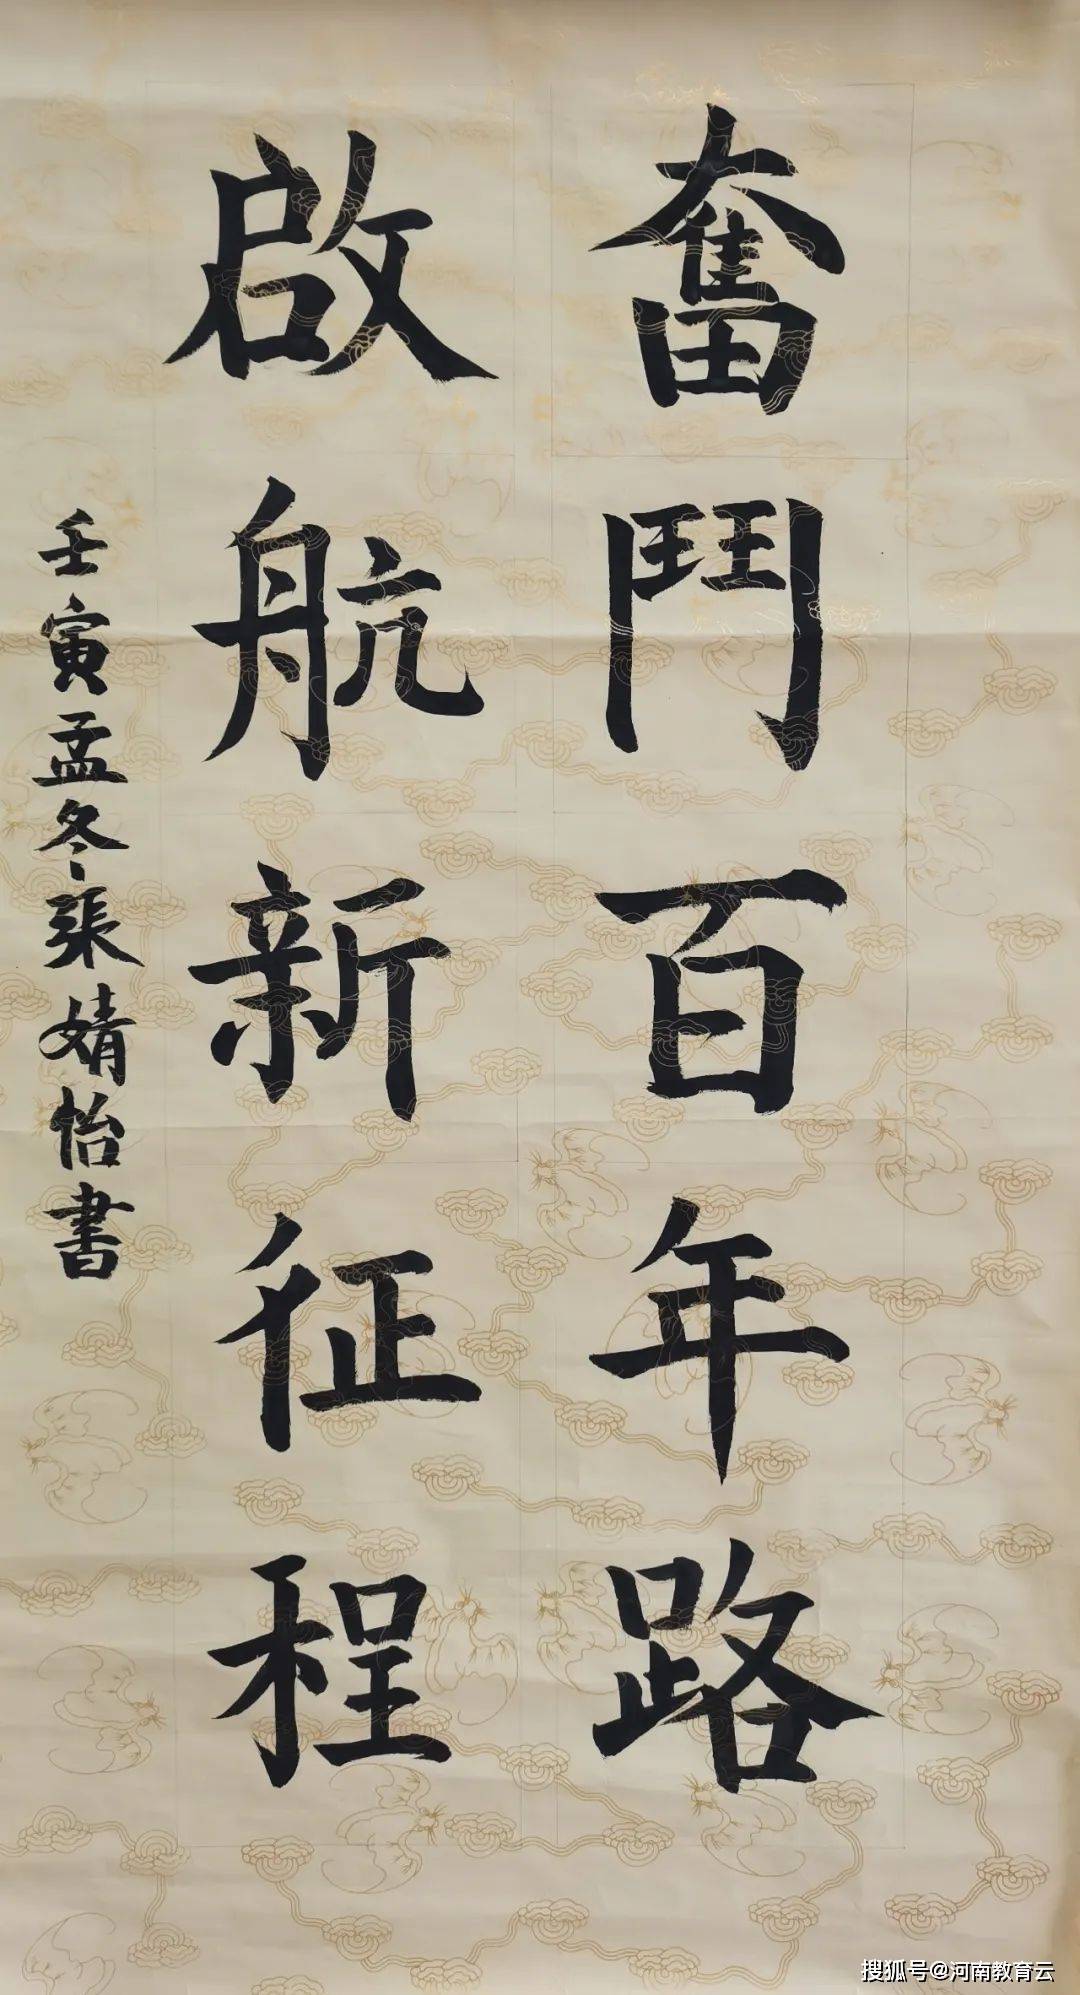 奮鬥百年路
啟航新征程
壬寅孟冬張婧怡書
搜狐号@河南教育云